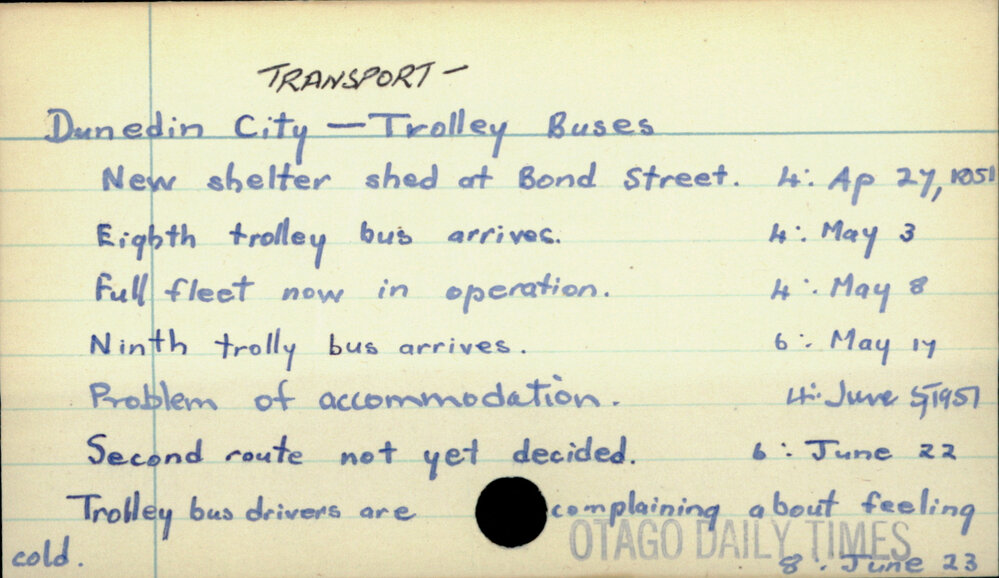 TRANSPORT —
Dunedin City — Trolley Buses
New shelter shed at Bond Street. 4: Ap 27, 1951
Eighth trolley bus arrives. 4: May 3
Full fleet now in operation. 4: May 8
Ninth trolly bus arrives. 6: May 17
Problem of accommodation. 4: June 5, 1951
Second route not yet decided. 6: June 22
Trolley bus drivers are complaining about feeling
cold. 8: June 23
OTAGO DAILY TIMES